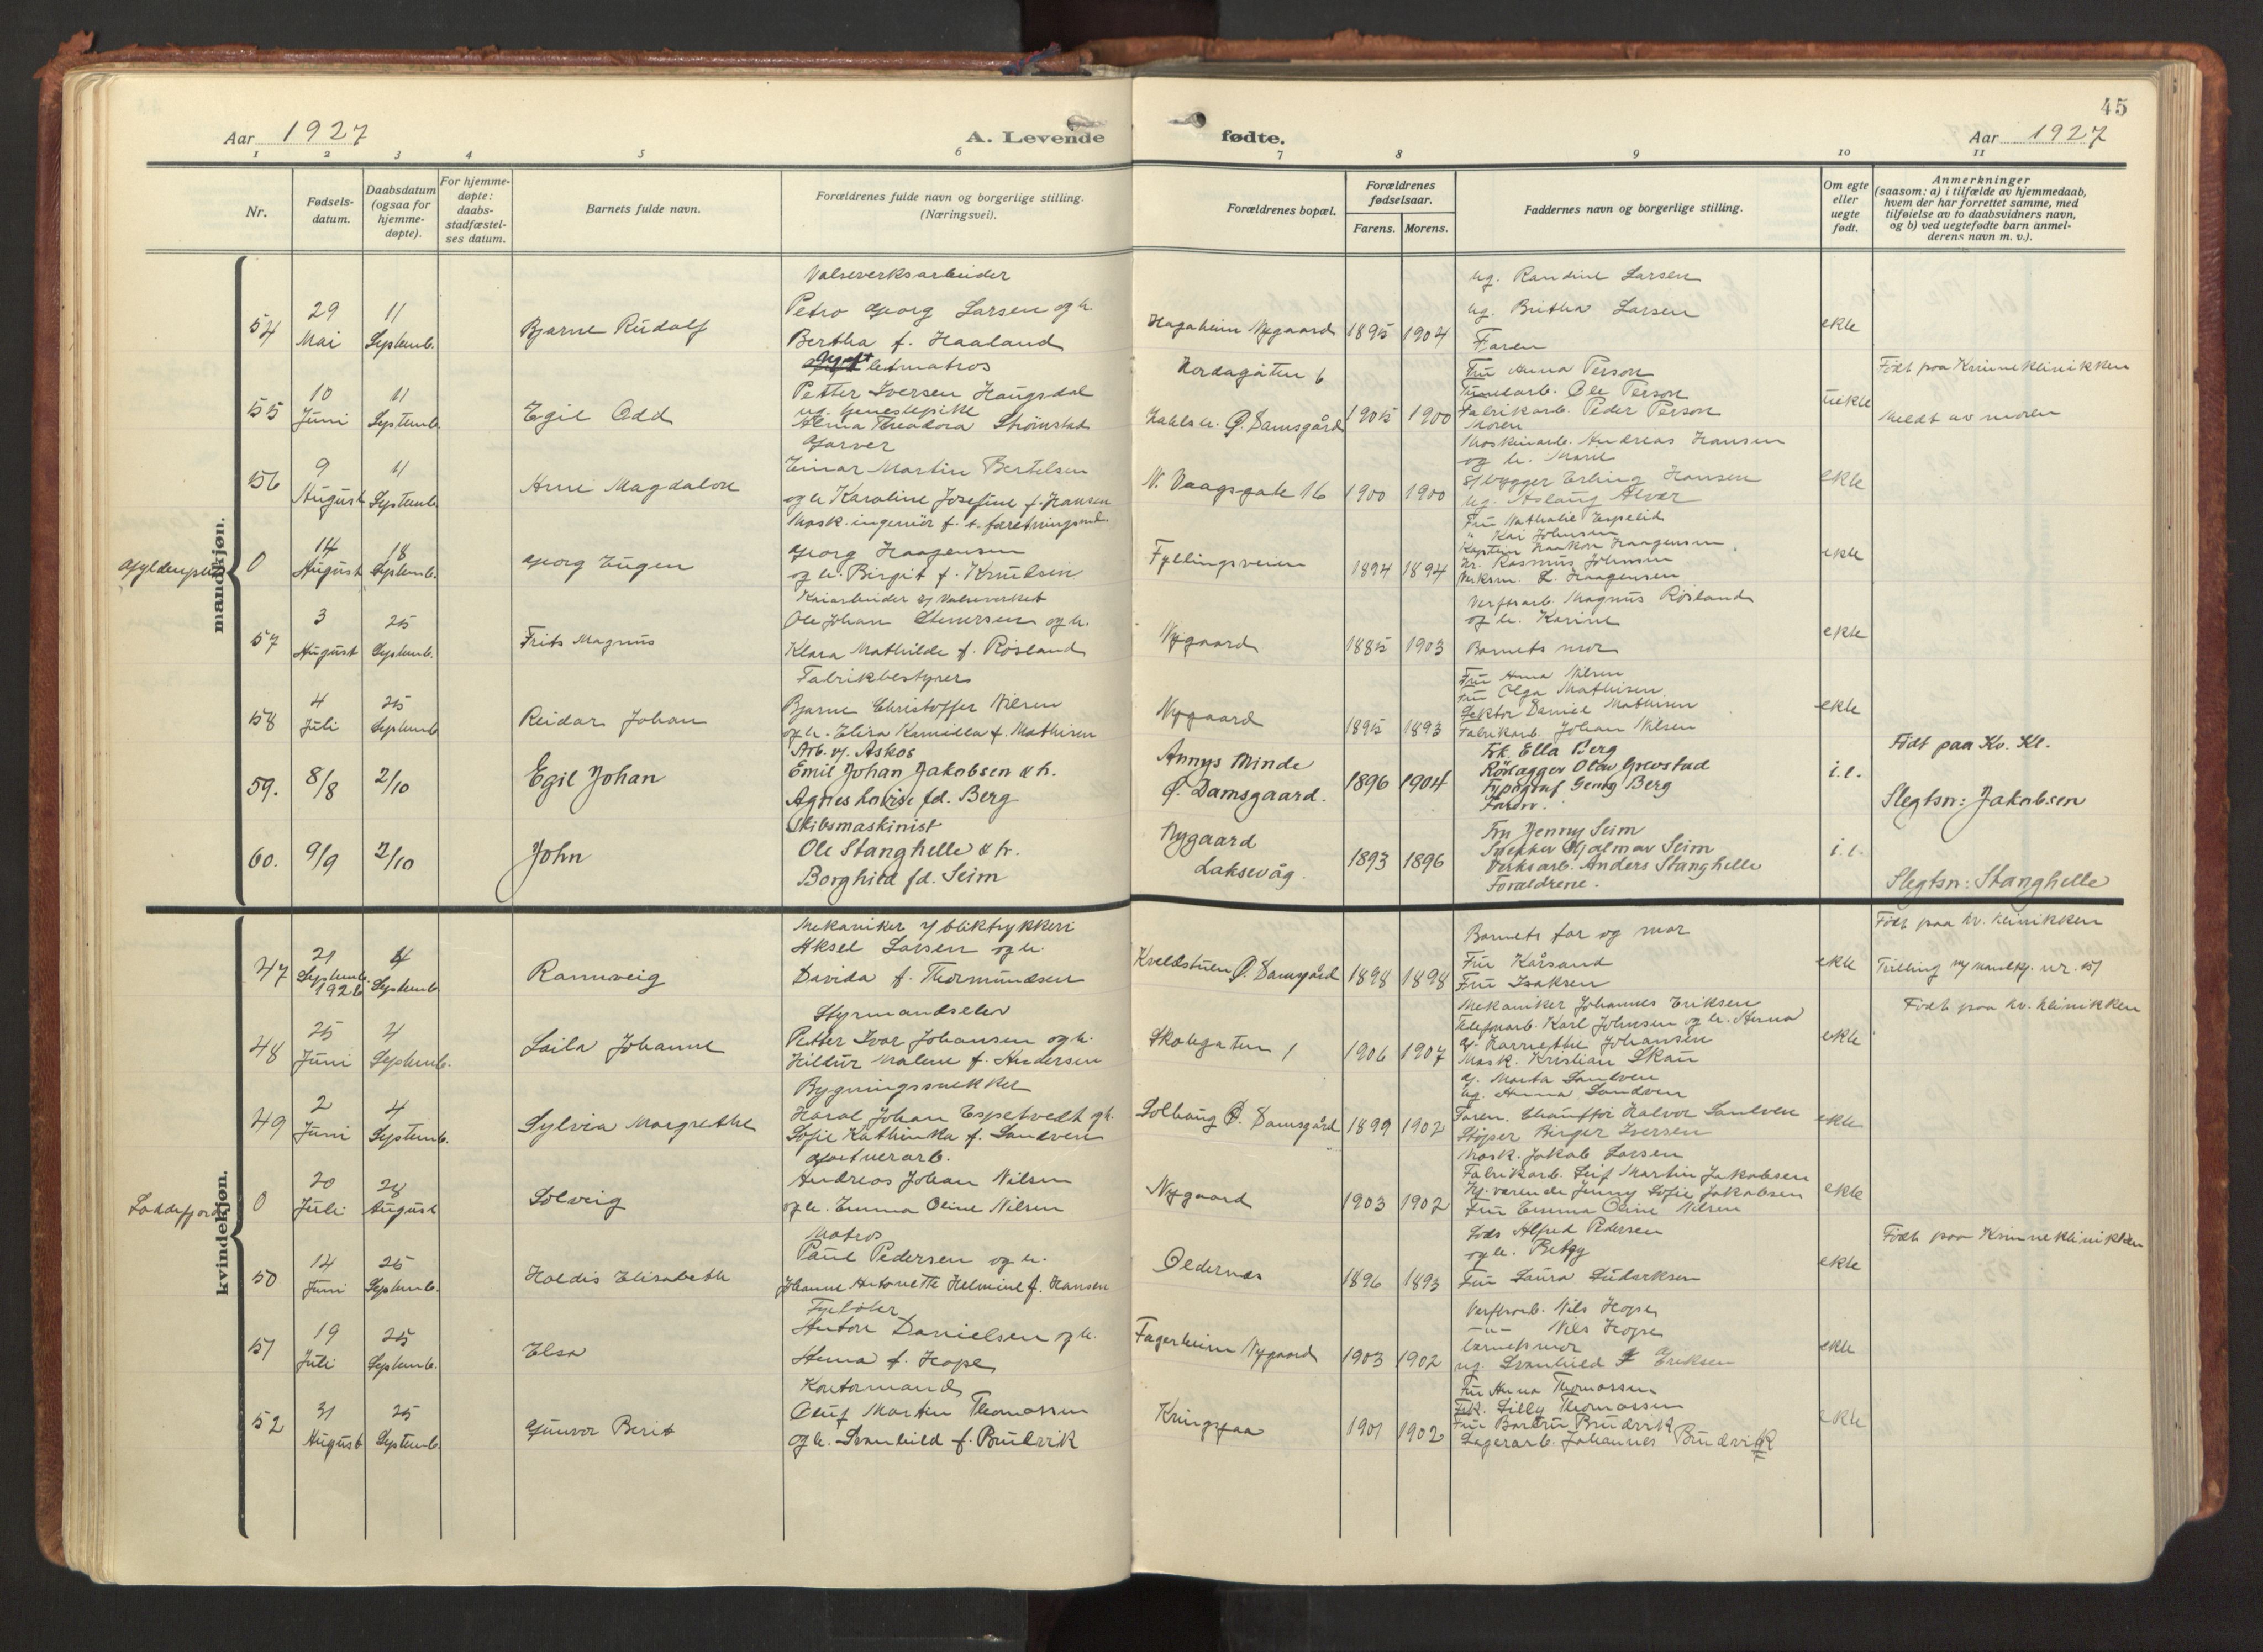 45
Aar 1927
A. Levende
fødte.
Aar 1927
1 2 3 4 5 6 7 8 9 10 11
Nr.
Fødsels-
datum.
Daabsdatum
(ogsaa for
hjemme-
døpte).
For hjemme-
døpte:
daabs-
stadfæstel-
ses datum.
Barnets fulde navn.
Forældrenes fulde navn og borgerlige stilling.
(Næringsvei).
Forældrenes bopæl.
Forældrenes
fødselsaar.
Farens. Morens.
Faddernes navn og borgerlige stilling.
Om egte
eller
uegte
født.
Anmerkninger
(saasom: a) i tilfælde av hjemmedaab,
hvem der har forrettet samme, med
tilføielse av to daabsvidners navn,
og b) ved uegtefødte barn anmel-
derens navn m. v.).
mandkjøn.
54
29
Mai
11
Septemb.
Bjarne Rudolf
Valseverksarbeider
Petro Georg Larsen og h.
Bertha f. Haaland
Hagaheim Nygaard
1895 1904
Ug. Randine Larsen
Ug. Britha Larsen
Faren
ekte
55
10
Juni
11
Septemb.
Egil Odd
letmatros
Petter Iversen Haugsdal
ug. tjenestepike
Alma Theodora Strømstad
Nordagaten 6
Ø. Damsgård
1905 1900
Fru Anna Person
Ole Person
Fabrikarb. Peder Person
Moren
uekte
Født paa Kvinneklinikken
Meldt av moren
56
9
August
11
Septemb.
Arne Magdalon
Garver
Einar Martin Bertelsen
og h. Karoline Josefine f. Hansen
N. Vaagsgate 16
1900 1900
Maskinarb. Andreas Hansen
og h. Marie
Erling Hansen
Ug. Aslaug Alver
ekte
0
14
August
18
Septemb.
Georg Eugen
Mask. ingeniør
Georg Haagensen
og h. Birgit f. Knudsen
Fyllingsveien
1894 1894
Fru Nathalie Espelid
" Kai Johnsen
Kaptein Haakon Haagensen
Hr. Rasmus Johnsen
L. Haagensen
ekte
57
3
August
25
Septemb.
Frits Magnus
Kaiarbeider v/ Valseverket
Ole Johan Stenersen og h.
Klara Mathilde f. Røsland
Nygaard
1885 1903
Verftsarb. Magnus Røsland
og h. Karine
Barnets mor
ekte
58
4
Juli
25
Septemb.
Reidar Johan
Fabrikbestyrer
Bjarne Christoffer Nilsen
og h. Elisa Kamilla f. Mathisen
Nygaard
1895 1893
Fru Anna Nilsen
Fru Olga Mathisen
Daniel Mathisen
Fabrikarb. Johan Nilsen
ekte
59.
8/8
2/10
Egil Johan
Arb. v/ Askos
Emil Johan Jakobsen & h.
Agnes Lovise fd. Berg
Annys Minde
Ø. Damsgaard.
1896 1904
Frk. Ella Berg
Rørlægger Olav Grevstad
Typograf Georg Berg
Faren.
i.e.
Født paa Kv. Kl.
Slegtsn: Jakobsen
60.
9/9
2/10
John
Skibsmaskinist
Ole Stanghelle & h.
Borghild fd. Seim
Nygaard
Laksevåg.
1893 1896
Fru Jenny Seim
Snekker Hjalmar Seim
Verksarb. Anders Stanghelle
Forældrene.
i.e.
Slegtsn: Stanghelle
kvindekjøn.
47
21
Septemb.
1926
4
Septemb.
Rannveig
Mekaniker v/ bliktrykkeri
Aksel Larsen og h.
Davida f. Thormundsen
Kveldstuen Ø. Damsgård
1898 1898
Barnets far og mor
Fru Kårsand
Fru Isaksen
ekte
Født paa kv. klinikken
Tvilling m/ mandkj. nr. 51
48
25
Juni
4
Septemb.
Laila Johanne
Styrmandselev
Petter Ivar Johansen og h.
Hildur Malene f. Andersen
Skolegaten 1
1906 1907
Mekaniker Johannes Eriksen
Telefonarb. Karl Johnsen og h. Anna
Johansen
Mask. Kristian Skau
ekte
Født paa kv. klinikken
49
2
Juni
4
Septemb.
Sylvia Margrethe
Bygningssnekker
Haral Johan Espetvedt og h.
Sofie Kathinka f. Sandven
Solhaug Ø. Damsgård
1899 1902
g. Marta Sandven
Ug. Anna Sandven
Faren. Chauffør Halvor Sandven
Støper Birger Iversen
ekte
0
20
Juli
28
August
Solveig
Gartnerarb.
Andreas Johan Nilsen
og h. Emma Oline Nilsen
Nygaard
1903 1902
Mask. Jakob Larsen
Fabrikarb. Leif Martin Jakobsen
Hj. værende Jenny Sofie Jakobsen
Fru Emma Oline Nilsen
ekte
50
14
Juni
25
Septemb.
Holdis Elisabeth
Matros
Paul Pedersen og h.
Johanne Antonette Helmine f. Hansen
1896 1893
Lods Alfred Pedersen
og h. Betzy
Fru Laura Ludviksen
ekte
Født paa Kvinneklinikken
51
19
Juli
25
Septemb.
Elsa
Fyrbøter
Anton Danielsen og h.
Anna f. Hope
Fagerheim Nygaard
1903 1902
Verftsarb. Nils Hope
-"- Nils Hope
barnets mor
ug. Svanhild Eriksen
ekte
52
31
August
25
Septemb.
Gunvor Berit
Kontormand
Oluf Martin Thomassen
og h. Svanhild f. Brudvik
Kringsjaa
1901 1902
Fru Anna Thomassen
Frk. Lilly Thomassen
Fru Brudvik
Lagerarb. Johannes Brudvik
ekte